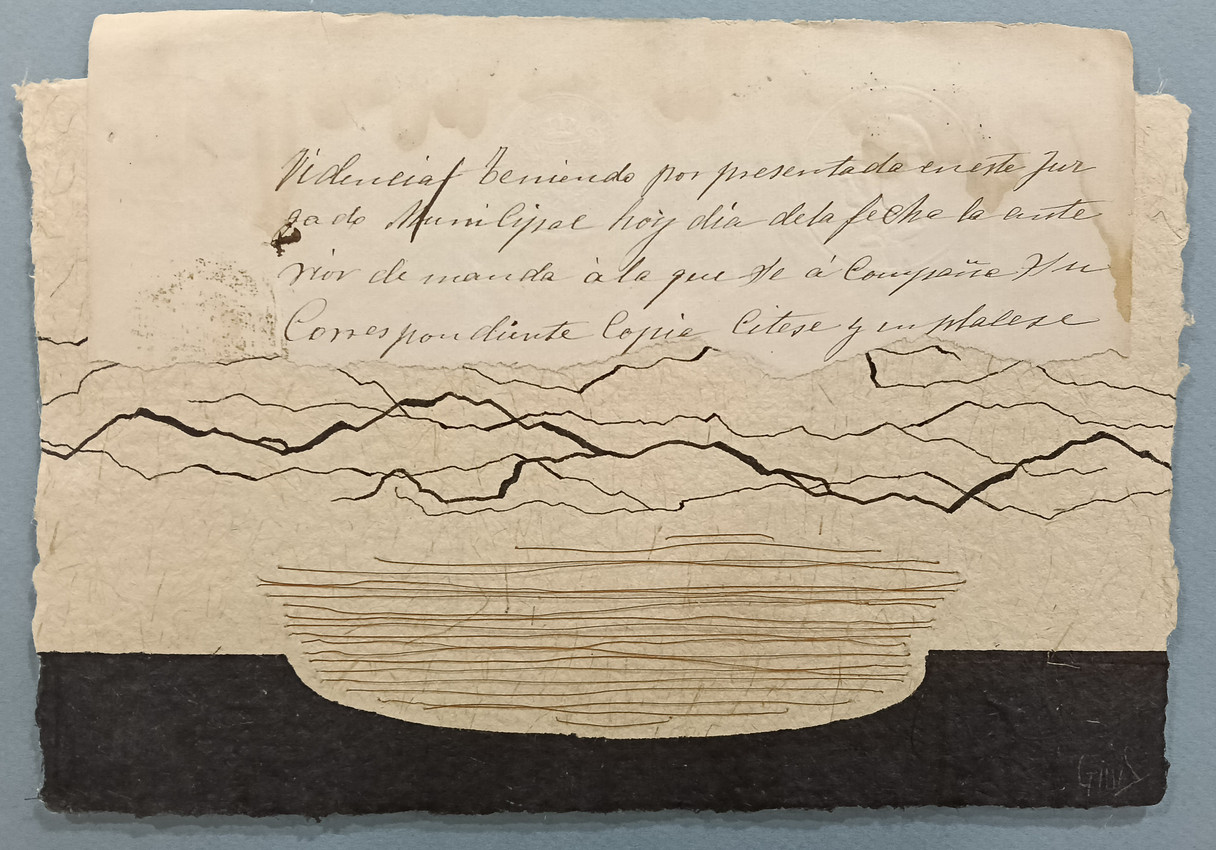 Videncia/ Teniendo por presentada en este Juz
gado Municipal hoy dia dela fecha la ante
rior de manda à la que se á Compaña Y su
Correspondiente Copia Citese y en plácese
GINS